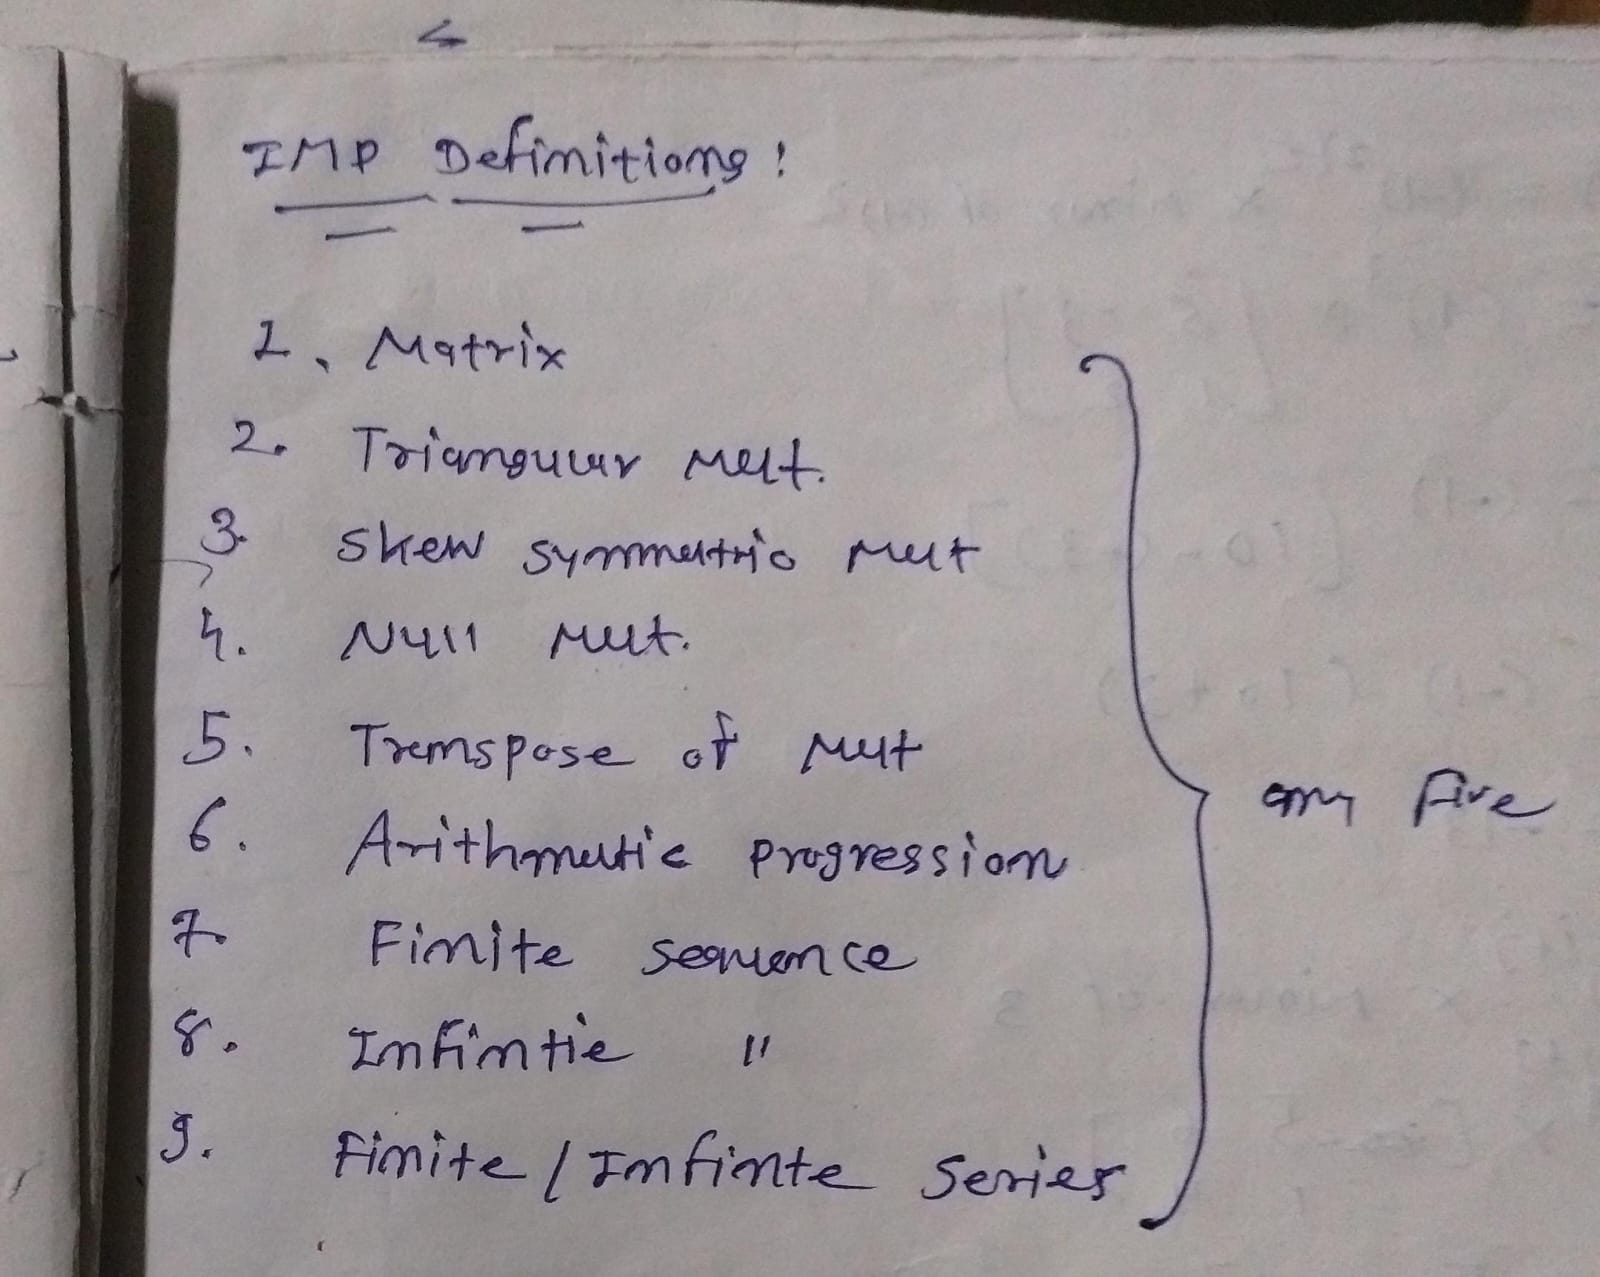 IMP Definitions:
1. Matrix
2. Triangular Mat.
3. Skew symmetric Mat
4. Null Mat.
5. Transpose of Mat
6. Arithmetic progression
7. Finite sequence
8. Infintie "
9. Finite / Infinte Series
any five